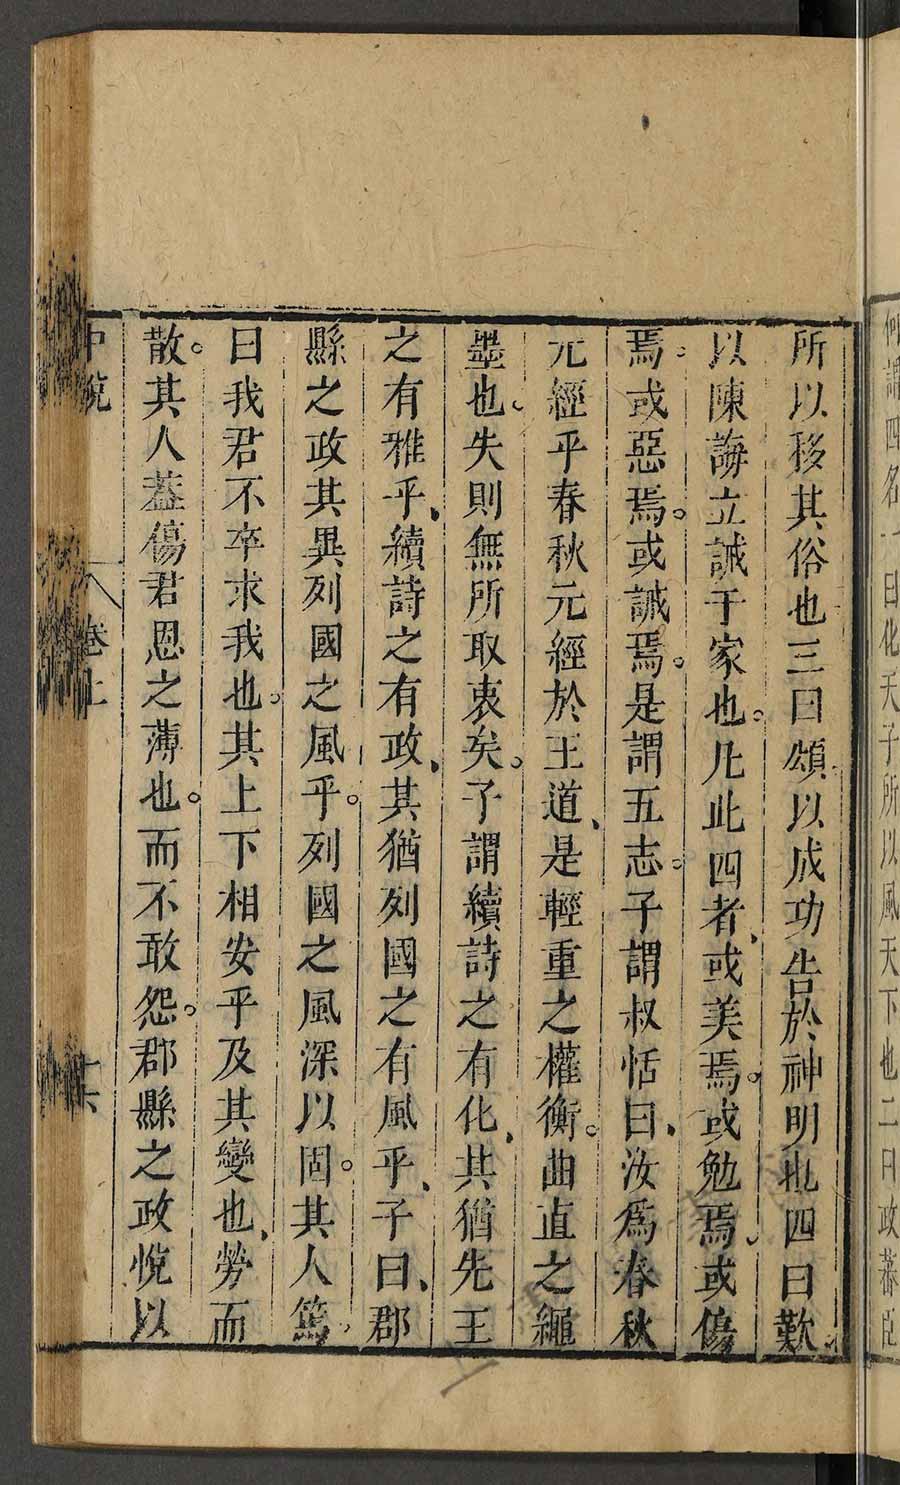 何謂四名一曰化天子所以風天下也二曰政蕃臣
所以移其俗也三曰頌以成功告於神明也四曰歎
以陳誨立誡于家也。凡此四者、或美焉。或勉焉、或傷
焉。或惡焉。或誡焉。是謂五志。子謂叔恬曰、汝爲春秋
元經乎春秋元經於王道、是輕重之權衡。曲直之繩
墨也、失則無所取衷矣。子謂續詩之有化、其猶先王
之有雅乎、續詩之有政、其猶列國之有風乎、子曰、郡
縣之政其異列國之風乎。列國之風深以固。其人篤、
曰我君不卒求我也。其上下相安乎及其變也、勞而
散。其人蓋傷君恩之薄也。而不敢怨。郡縣之政悅以
中說 卷上